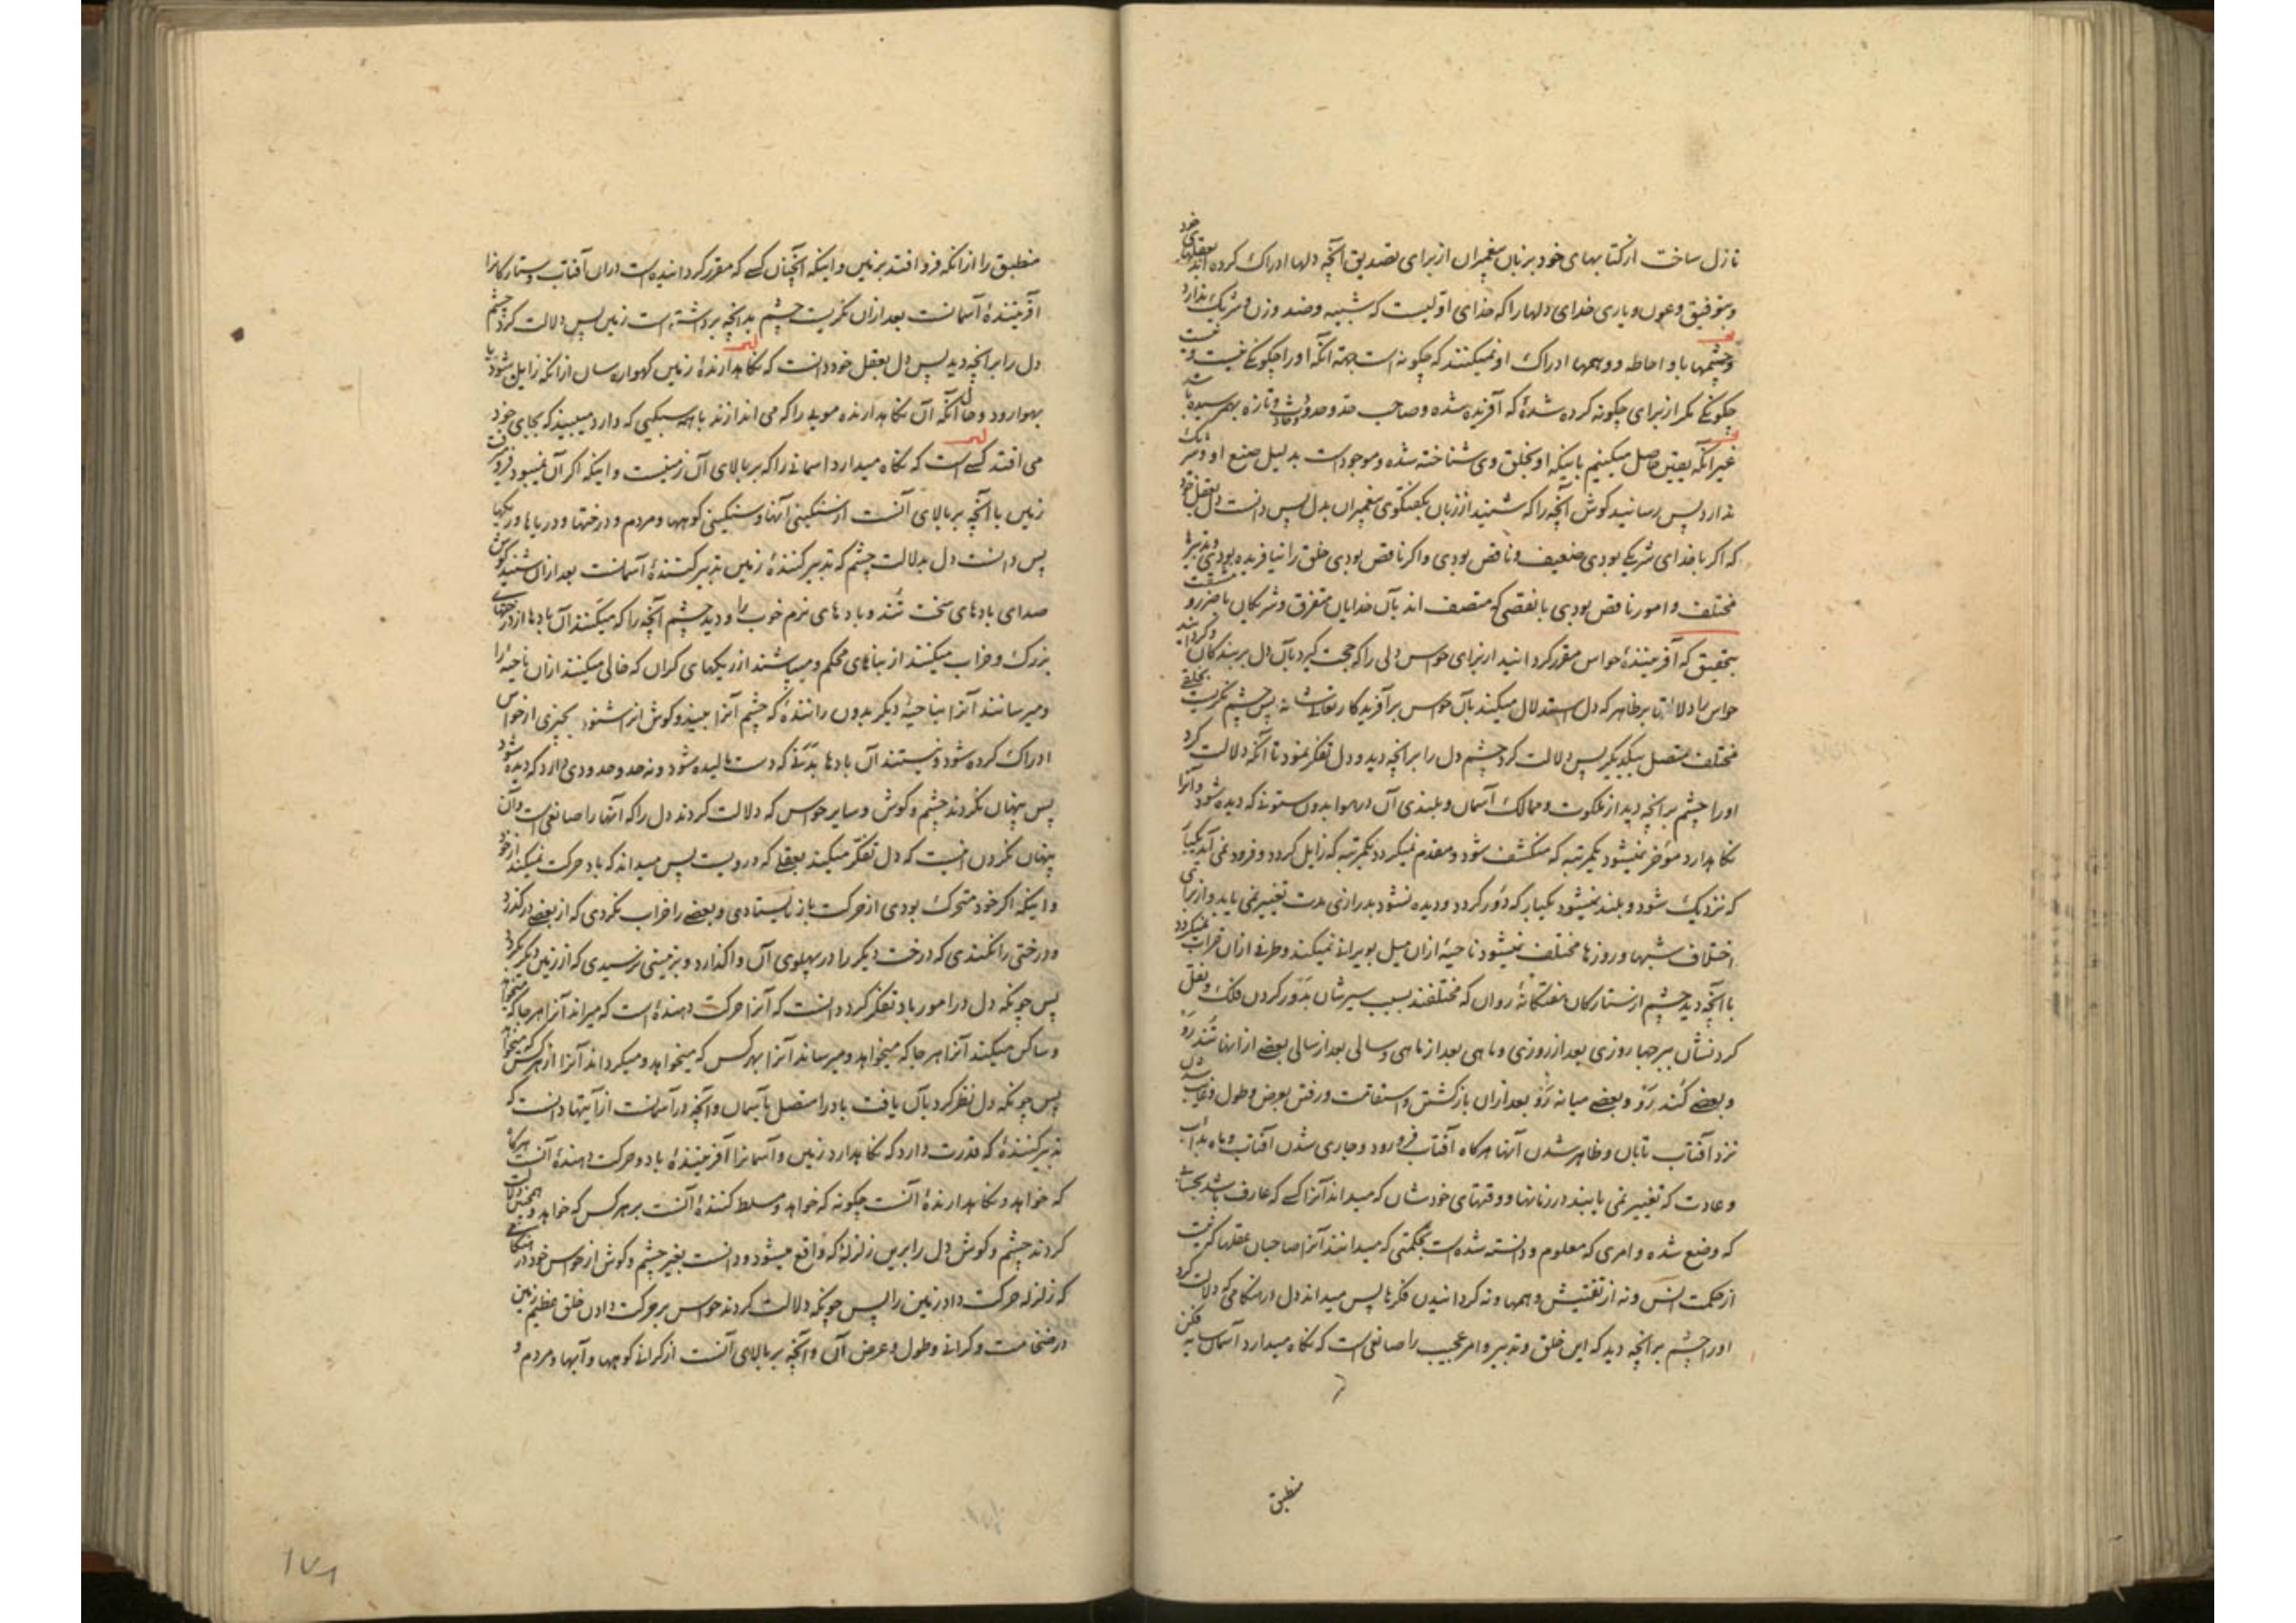 نازل ساخت از کتابهای خود بر زبان پیغمبران از برای تصدیق آنچه دلها ادراک کرده اند بعقلهای خود
و بتوفیق و عون و یاری خدای دلها را که خدای اوّلیست که شبیه و ضد و زن و شریک ندارد
و چشمها باو احاطه و وهمها ادراک او نمیکنند که چگونه است بجهة آنکه او را چگونگی نیست و نیست
چگونگی مگر از برای چگونه کرده شدهٔ که آفریده شده و صاحب حدّ و حدوث و تازه بهم رسیده باشد
غیر آنکه یقین حاصل میکنیم باینکه او بخلق وی شناخته شده و موجود است بدلیل صنع او و شریک
ندارد پس رسانید گوش آنچه را که شنید از زبان بگفتگوی پیغمبران بدل پس دانست دل بعقل خود
که اگر با خدای شریکی بودی ضعیف و ناقص بودی و اگر ناقص بودی خلق را نیافریده بودی و تدبیرها
مختلف و امور ناقص بودی با نقصی که متصف اند بآن خدایان متفرق و شریکان با ضرر و
بتحقیق که آفرینندهٔ حواس مقرر گردانید از برای حواس دلی را که حجت گیرد بآن دل بر بندگان و گرداند
حواس را دلالتها بر ظاهر که دل استدلال میکند بآن حواس بر آفریدگار تعالی شانه پس چشم نگریست بخلقی
مختلف متصل بیکدیگر پس دلالت کرد چشم دل را بر آنچه دید و دل تفکر نمود تا آنکه دلالت کرد
او را چشم بر آنچه دید از ملکوت و ممالک آسمان و بلندی آن در هوا بدون ستونی که دیده شود و آنرا
نگاهدارد مؤخر نمیشود یکمرتبه که منکشف شود و مقدم نمیگردد یکمرتبه که زایل گردد و فرود نمی آید یکبار
که نزدیک شود و بلند نمیشود یکبار که دور گردد و دیده نشود بدرازی مدت تغییر نمی یابد و از برای
اختلاف شبها و روزها مختلف نمیشود ناحیهٔ از آن میل بویرانی نمیکند و طرفی از آن خراب نمیگردد
با آنچه دید چشم از ستارگان هفتگانهٔ روان که مختلفند بسبب سیرشان بدور کردن فلک و نقل
کردنشان ببرجها روزی بعد از روزی و ماهی بعد از ماهی و سالی بعد از سالی بعضی از انها تند رو
و بعضی کند رو و بعضی میانه رو بعد از آن بازگشتن و استقامت و رفتن بعرض و طول و غایب شدن
نزد آفتاب تابان و ظاهر شدن آنها هرگاه آفتاب فرو رود و جاری شدن آفتاب و ماه
و عادت که تغییر نمی یابند در زمانها و وقتهای خودشان که میداند آنرا کسی که عارف باشد بحسابی
که وضع شده و امری که معلوم و دانسته شده است بحکمتی که میدانند آنرا صاحبان عقلها که نیست
از حکمت انس و نه از تفتیش وهمها و نه گردانیدن فکرها پس میداند دل در هنگامی که دلالت کرد
او را چشم بر آنچه دید که این خلق و تدبیر و امر عجیب را صانعی است که نگاه میدارد آسمان سایه فکن
منطبق
منطبق را از آنکه فرو افتد بر زمین و اینکه آنچنان کسی که مقرر گردانیده است در آن آفتاب و ستارگانرا
آفرینندهٔ آسمانست بعد از آن نگریست چشم بدانچه برداشته است زمین پس دلالت کرد چشم
دل را بر آنچه دید پس دل بعقل خود دانست که نگاهدارندهٔ زمین گهواره سان از آنکه زایل شود یا
بهوا رود و حال آنکه آن نگاهدارنده مویی را که می اندازند باهمه سبکیی که دارد میبیند که بجای خود
می افتد کسی است که نگاه میدارد اسمانی را که بر بالای آن زمینست و اینکه اگر آن نمیبود فرو میرفت
زمین با آنچه بر بالای آنست از سنگینی آنها و سنگینی کوهها و مردم و درختها و دریاها و ریگها
پس دانست دل بدلالت چشم که تدبیر کنندهٔ زمین تدبیر کنندهٔ آسمانست بعد از آن شنید گوش
صدای بادهای سخت تند و بادهای نرم خوب را و دید چشم آنچه را که میکنند آن بادها از درختهای
بزرگ و خراب میکنند از بناهای محکم و میپاشند از ریگهای گران که خالی میکنند از آن ناحیهٔ را
و میرسانند آنرا بناحیهٔ دیگر بدون رانندهٔ که چشم آنرا ببیند و گوش انرا شنود بچیزی از حواس
ادراک کرده شود و نیستند آن بادها بدنی که دست مالیده شود و نه حد و حدودی دارد که دیده شود
پس پنهان نکردند چشم و گوش و سایر حواس که دلالت کردند دل را که آنها را صانعی است و آن
پنهان نکردن اینست که دل تفکر میکند بعقلی که درویست پس میداند که باد حرکت نمیکند از خود
و اینکه اگر خود متحرک بودی از حرکت باز نایستادی و بعضی را خراب نکردی که از بعضی درگذرد
و درختی را نکندی که درخت دیگر را در پهلوی آن واگذارد و بزمینی نرسیدی که از زمین دیگر بگردد
پس چونکه دل در امور باد تفکر کرد دانست که آنرا حرکت دهندهٔ است که میراند آنرا هر جا که میخواهد
و ساکن میکند آنرا هر جا که میخواهد و میرساند آنرا بهر کس که میخواهد و میگرداند آنرا از هر کس که میخواهد
پس چونکه دل نظر کرد بآن یافت باد را متصل بآسمان و آنچه در آسمانست از آیتها دانست که
تدبیر کنندهٔ که قدرت دارد که نگاهدارد زمین و آسمانرا آفرینندهٔ باد و حرکت دهندهٔ آنست هرگاه
که خواهد و نگاهدارندهٔ آنست چگونه که خواهد و مسلط کنندهٔ آنست بر هر کس که خواهد و همچنین دلالت
کردند چشم و گوش دل را برین زلزلهٔ که واقع میشود و دانست بغیر چشم و گوش از حواس خود در هنگامی
که زلزله حرکت داد زمین را پس چونکه دلالت کردند حواس بر حرکت دادن خلق عظیم زمین
در ضخامت و گرانی و طول و عرض آن و آنچه بر بالای آنست از گرانی کوهها و آبها و مردم و
۱۷۸